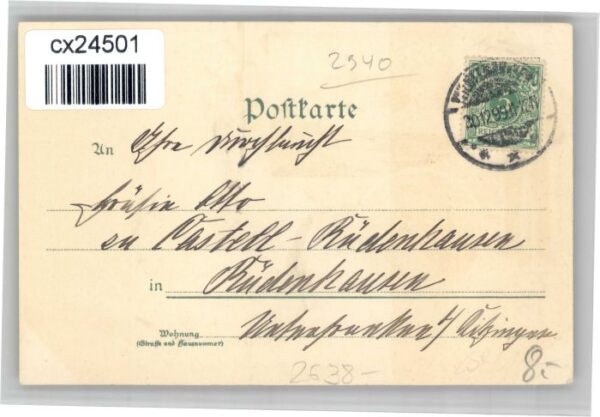 cx24501
2940
Postkarte
An Ihre Durchlaucht
Gräfin Otto
zu Castell-Rüdenhausen
in Rüdenhausen
Wohnung
(Straße und Hausnummer)
Unterfranken b/ Kitzingen
2638-
8.-